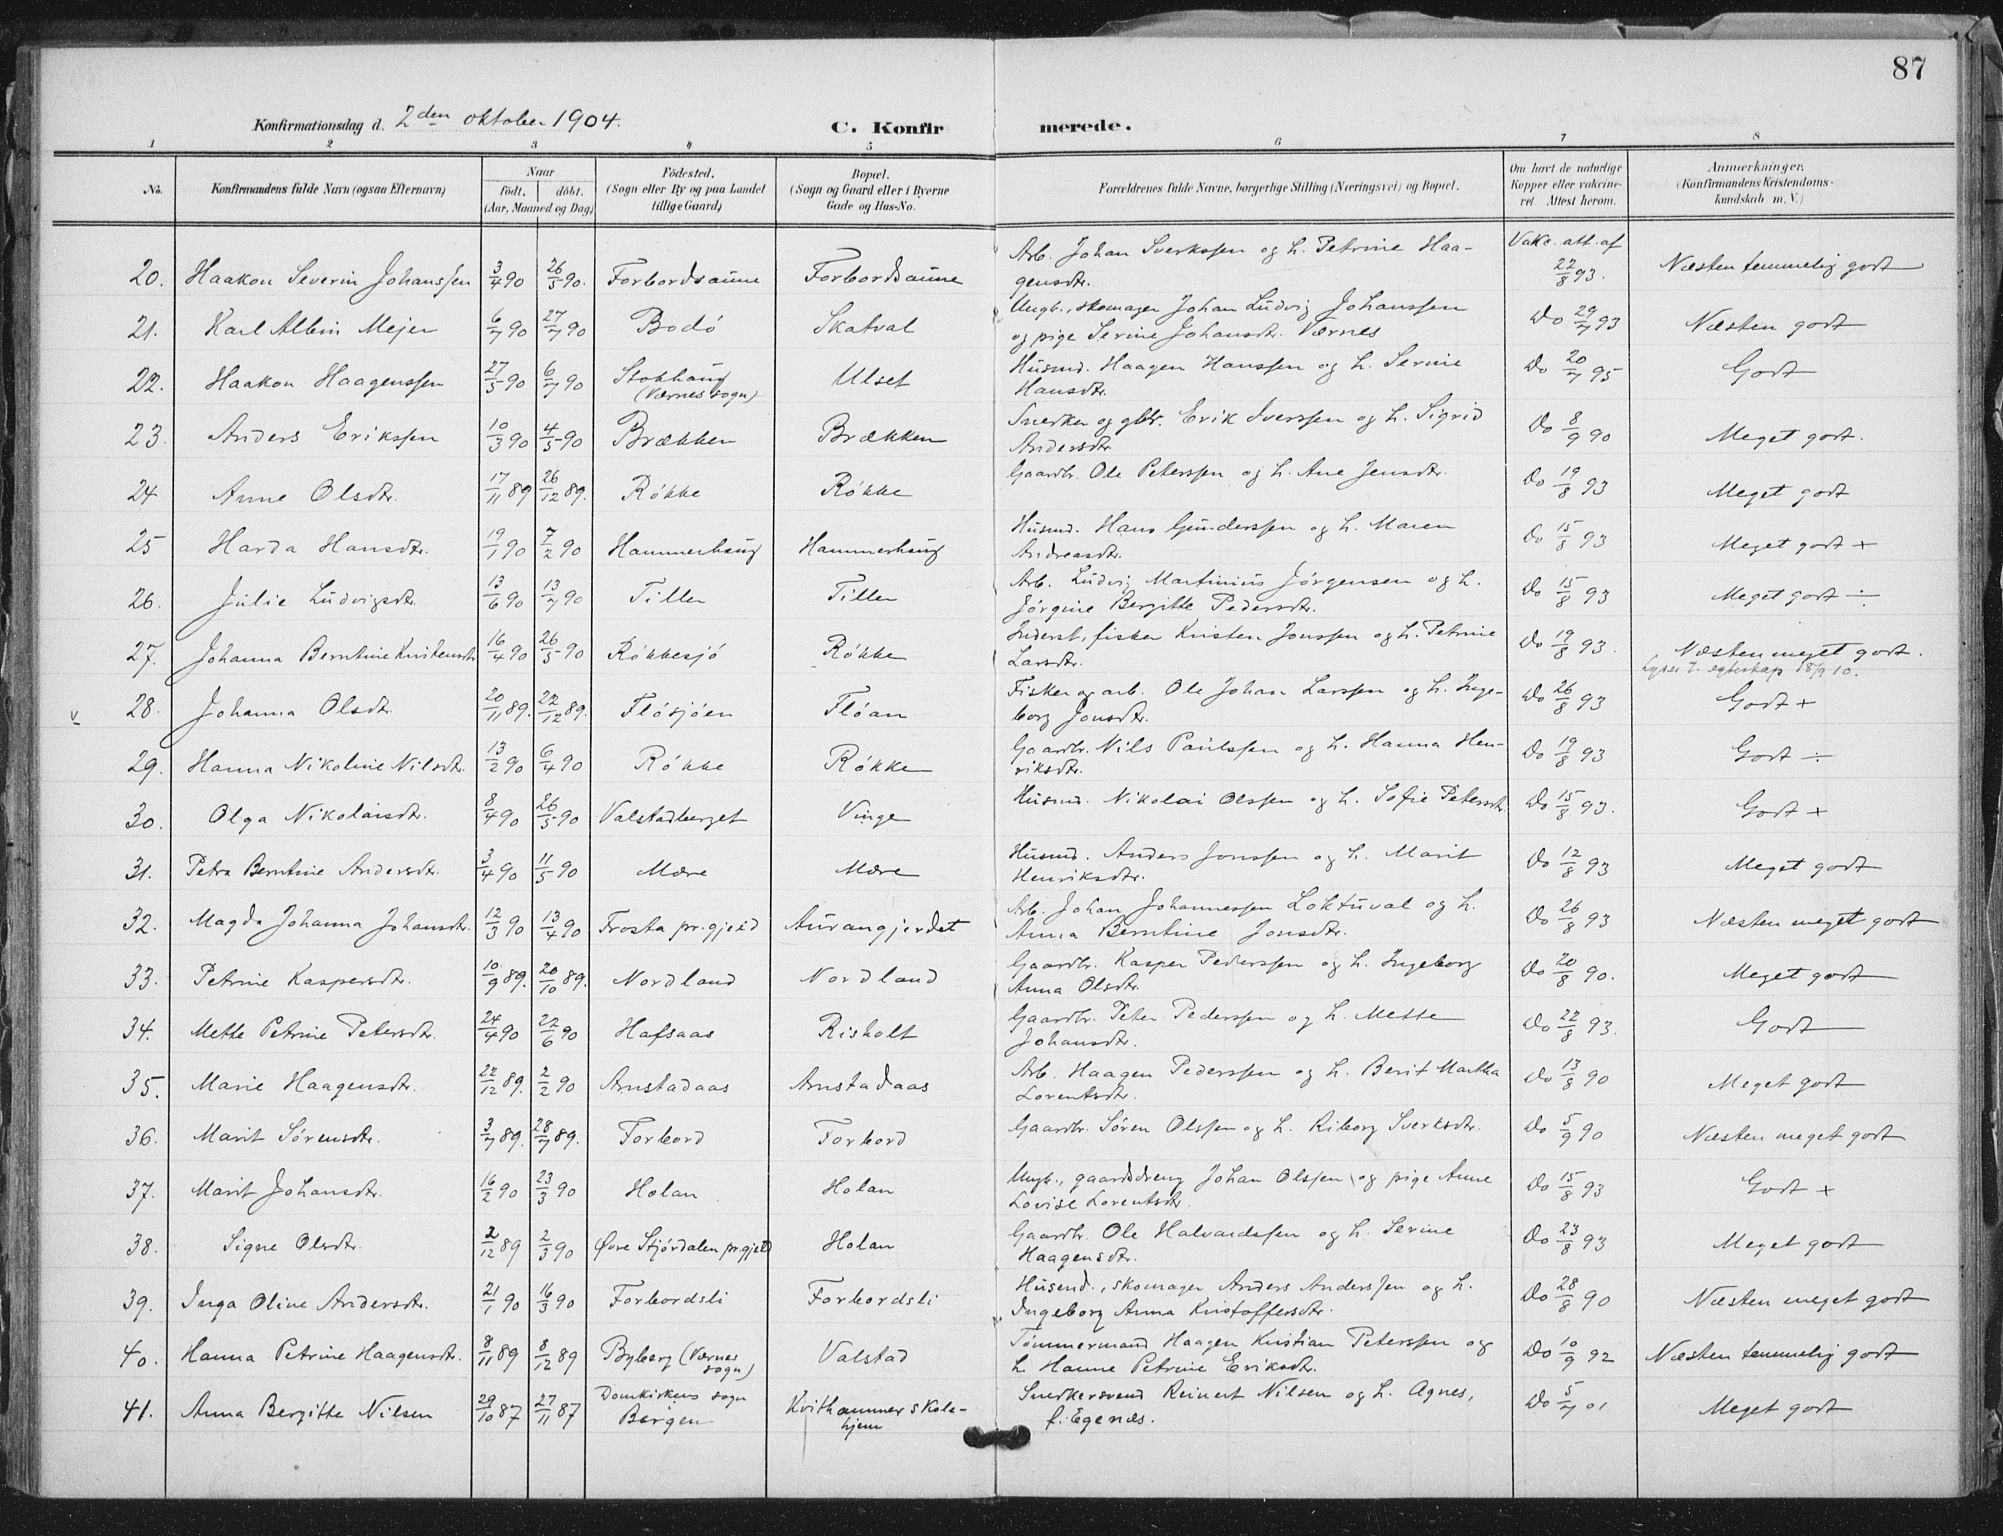 87
Konfirmationsdag d. 2den oktober 1904.
C. Konfirmerede.
1 2 3 4 5 6 7 8
No.
Konfirmandens fulde Navn (ogsaa Efternavn)
Naar
født. døbt.
(Aar, Maaned og Dag)
Fødested.
(Sogn eller By og paa Landet
tillige Gaard)
Bopæl.
(Sogn og Gaard eller i Byerne
Gade og Hus-No.
Forældrenes fulde Navne, borgerlige Stilling (Næringsvei) og Bopæl.
Om havt de naturlige
Kopper eller vakcine-
ret. Attest herom.
Anmærkninger.
(Konfirmandens Kristendoms-
kundskab m. V.)
20. Haakon Severin Johanssen 3/4 90 26/5 90. Forbordsaune Forbordsaune Arb. Johan Sverkssen og h. Petrine Haa-
gensdtr. Vakc. att. af 22/8 93. Næsten temmelig godt
21. Karl Albin Mejer 6/7 90 27/7 90 Bodø Skatval Ungk., skomager Johan Ludvig Johanssen
og pige Serine Johansdtr. Værnes Do 29/7 93 Næsten godt
22. Haakon Haagenssen 27/5 90 6/7 90 Stokhaug
(Værnes sogn) Ulset Husmd. Haagen Hanssen og h. Serine
Hansdtr. Do 20/7 95 Godt
23. Anders Erikssen 10/3 90 4/5 90 Brækken Brækken Snedker og gbr. Erik Iverssen og h. Sigrid
Andersdtr. Do 8/9 90 Meget godt.
24 Anne Olsdtr. 17/11 89 26/12 89. Røkke Røkke Gaardbr. Ole Peterssen og h. Ane Jensdtr. Do 19/8 93 Meget godt
25 Harda Hansdtr. 19/1 90 7/2 90 Hammerhaug Hammerhaug Husmd. Hans Gunderssen og h. Maren
Andreasdtr. Do 15/8 93 Meget godt +
26. Julie Ludvigsdtr. 13/6 90 13/7 90 Tiller Tiller Arb. Ludvig Martinius Jørgensen og h.
Jørgine Bergitte Pedersdtr. Do 15/8 93 Meget godt ÷
27. Johanna Berntine Kristensdtr 16/4 90 26/5 90 Røkkesjø Røkke Inderst, fisker Kristen Jonssen og h. Petrine
Larsdtr. Do 19/8 93. Næsten meget godt.
Lyser t. egteskap 18/9 10.
v 28. Johanna Olsdtr. 20/11 89. 22/12 89. Fløsjøen Fløan Fisker og arb. Ole Johan Larssen og h. Inge-
borg Jonsdtr. Do 26/8 93 Godt +
29. Hanna Nikoline Nilsdtr. 13/2 90 6/4 90 Røkke Røkke Gaardbr. Nils Paulssen og h. Hanna Hen-
riksdtr. Do 19/8 93 Godt ÷
30. Olga Nikolaisdtr. 8/4 90 26/5 90 Valstadberget Vinge Husmd. Nikolai Olssen og h. Sofie Petersdtr. Do 15/8 93. Godt +
31. Petra Berntine Andersdtr. 3/4 90 11/5 90 Mære Mære Husmd. Anders Jonssen og h. Marit
Henriksdtr. Do 12/8 93 Meget godt
32. Magda Johanna Johansdtr. 12/3 90 13/4 90 Frosta pr.gjeld Aurangjerdet Arb. Johan Johannessen Loktuval og h.
Anna Berntine Jonsdtr. Do 26/8 93 Næsten meget godt
33. Petrine Kaspersdtr. 10/9 89. 20/10 89. Nordland Nordland Gaardbr. Kasper Pederssen og h. Ingeborg
Anna Olsdtr. Do 20/8 90. Meget godt
34. Mette Petrine Petersdtr. 24/4 90 22/6 90 Hafsaas Risholt Gaardbr. Peter Pederssen og h. Mette
Johansdtr. Do 22/8 93. Godt
35. Marie Haagensdtr. 22/12 89. 2/2 90 Arnstadaas Arnstadaas Arb. Haagen Pederssen og h. Berit Martha
Lorentsdtr. Do 13/8 90 Meget godt
36. Marit Sørensdtr. 3/7 89. 28/7 89. Forbord Forbord Gaardbr. Søren Olssen og h. Riborg Sverksdtr. Do 5/9 90 Næsten meget godt
37. Marit Johansdtr. 16/2 90 23/3 90 Holan Holan Ungk., gaardsdreng Johan Olssen og pige Anne
Lovise Lorentsdtr. Do 15/8 93 Godt +
38. Signe Olsdtr. 2/12 89 2/3 90 Øvre Stjørdalen pr.gjeld Holan Gaardbr. Ole Halvardssen og h. Serine
Haagensdtr. Do 23/8 93 Meget godt
39. Inga Oline Andersdtr. 21/1 90 16/3 90 Forbordsli Forbordsli Husmd., skomager Anders Anderssen og h.
Ingeborg Anna Kristoffersdtr. Do 28/8 90 Næsten meget godt
40. Hanna Petrine Haagensdtr. 8/11 89 8/12 89 Byberg (Værnes
sogn) Valstad Tømmermand Haagen Kristian Peterssen og
h. Hanne Petrine Eriksdtr. Do 10/9 92 Næsten temmelig godt
41. Anna Bergitte Nilsen 29/10 87 27/11 87 Domkirkens sogn
Bergen Kvithammer skole-
hjem Snedkersvend Reinert Nilsen og h. Agnes,
f. Egenæs. Do 5/7 01 Meget godt